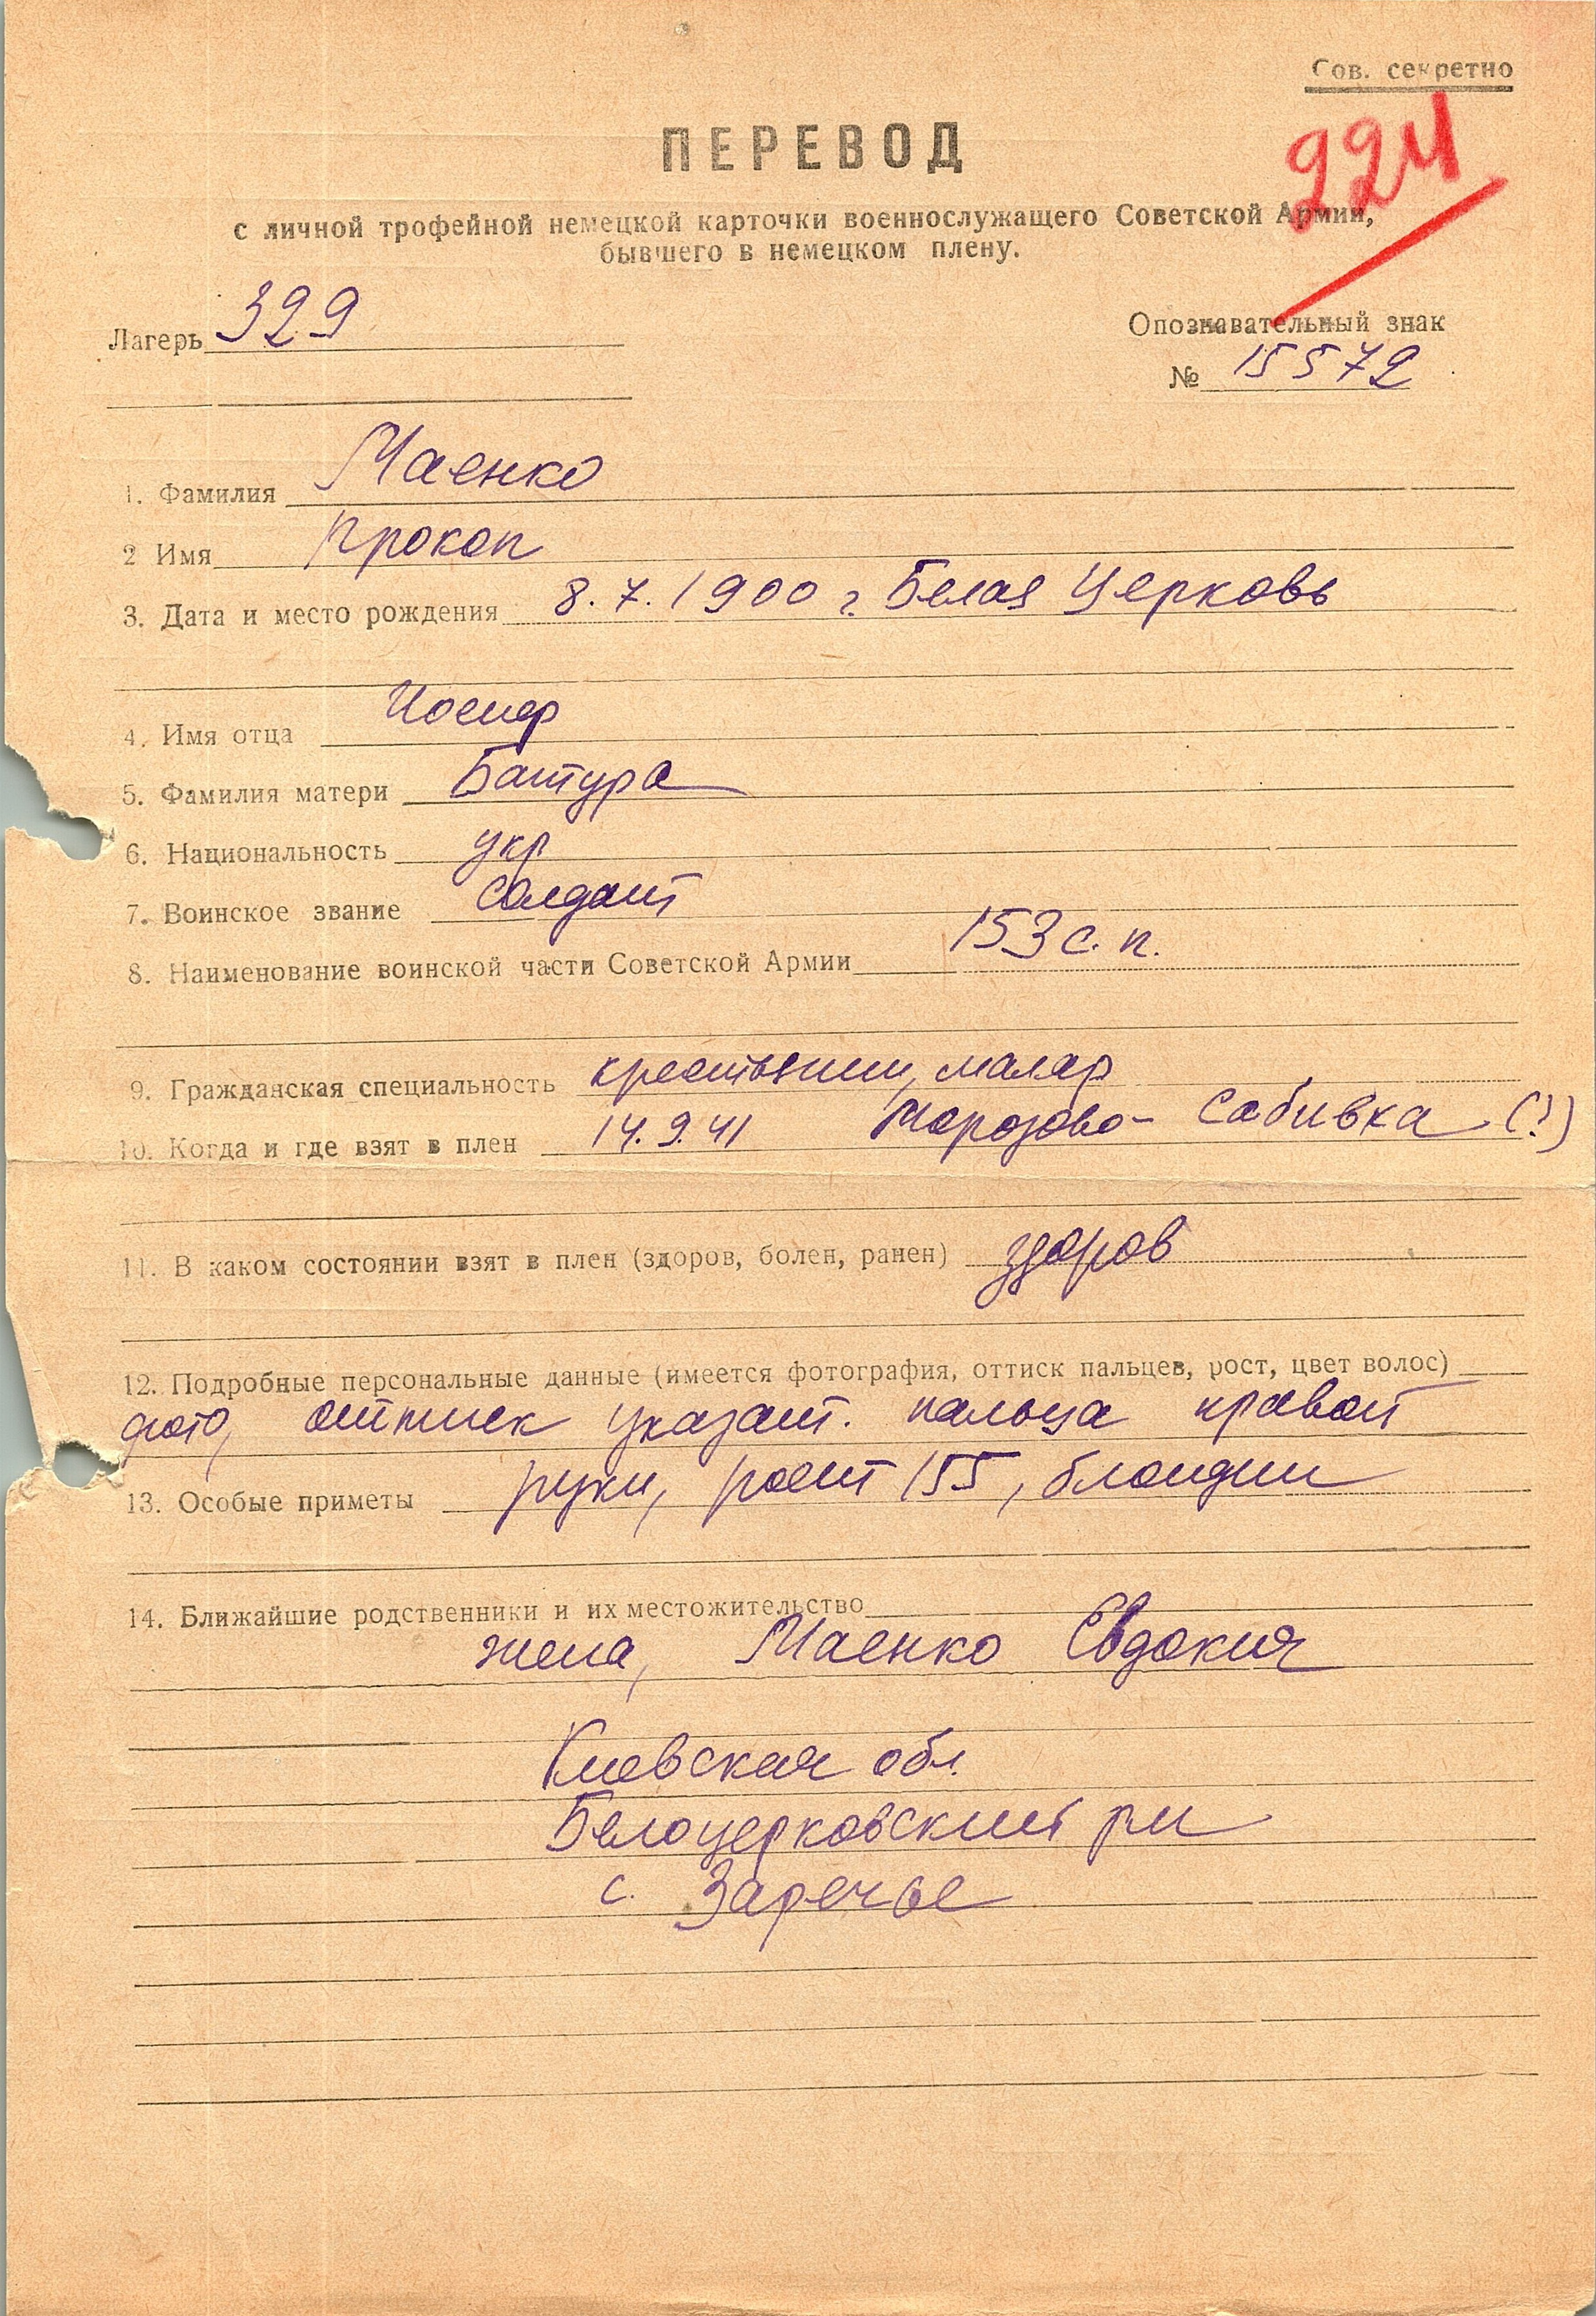 Сов. секретно
224
ПЕРЕВОД
с личной трофейной немецкой карточки военнослужащего Советской Армии,
бывшего в немецком плену.
Лагерь 329
Опознавательный знак
№ 15572
1. Фамилия Маенко
2 Имя Прокоп
3. Дата и место рождения 8.7.1900 г. Белая Церковь
4. Имя отца Иосиф
5. Фамилия матери Батура
6. Национальность укр
7. Воинское звание солдат
8. Наименование воинской части Советской Армии 153 с.п.
9. Гражданская специальность крестьянин, маляр
10. Когда и где взят в плен 14.9.41 Морозово-Сабивка (?)
11. В каком состоянии взят в плен (здоров, болен, ранен) здоров
12. Подробные персональные данные (имеется фотография, оттиск пальцев, рост, цвет волос)
фото, оттиск указат. пальца правой
13. Особые приметы руки, рост 155, блондин
14. Ближайшие родственники и их местожительство
жена, Маенко Евдокия
Киевская обл.
Белоцерковский рн
с. Заречье